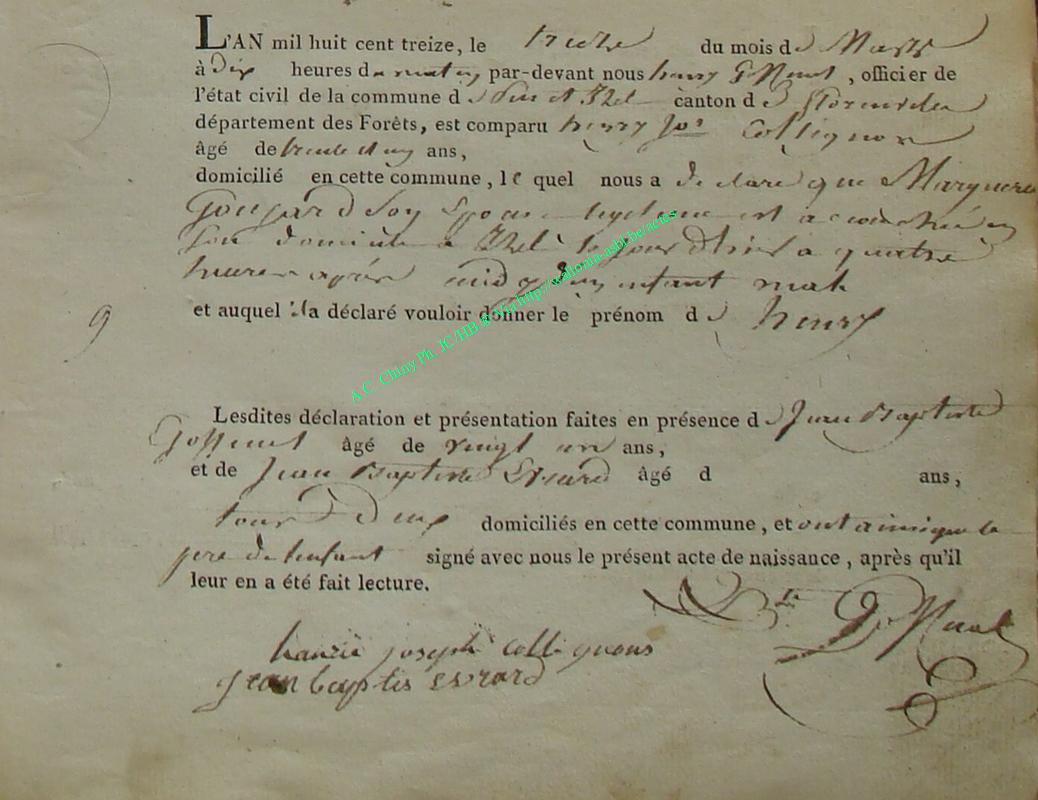 L'AN mil huit cent treize, le treize du mois de Mars
à dix heures du matin par-devant nous henry , officier de
l'état civil de la commune d et Izel canton d
département des Forêts, est comparu henry Jos Collignon
âgé de trente et un ans,
domicilié en cette commune, le quel nous a declaré que Marguerite
son Epouse est accouchée en
son domicile a Izel le jour d'hier a quatre
heures après midy d'un enfant male
et auquel il a déclaré vouloir donner le prénom de henry
9
Lesdites déclaration et présentation faites en présence de Jean Baptiste
âgé de vingt un ans,
et de Jean Baptiste Evrard âgé d ans,
tous deux domiciliés en cette commune, et ont ainsi que le
pere de l'enfant signé avec nous le présent acte de naissance, après qu'il
leur en a été fait lecture.
hanrii joseph collignons
jean baptis evrard
A.C. Chiny Ph. JC/HB & Via http://wallonia-asbl.be/actes